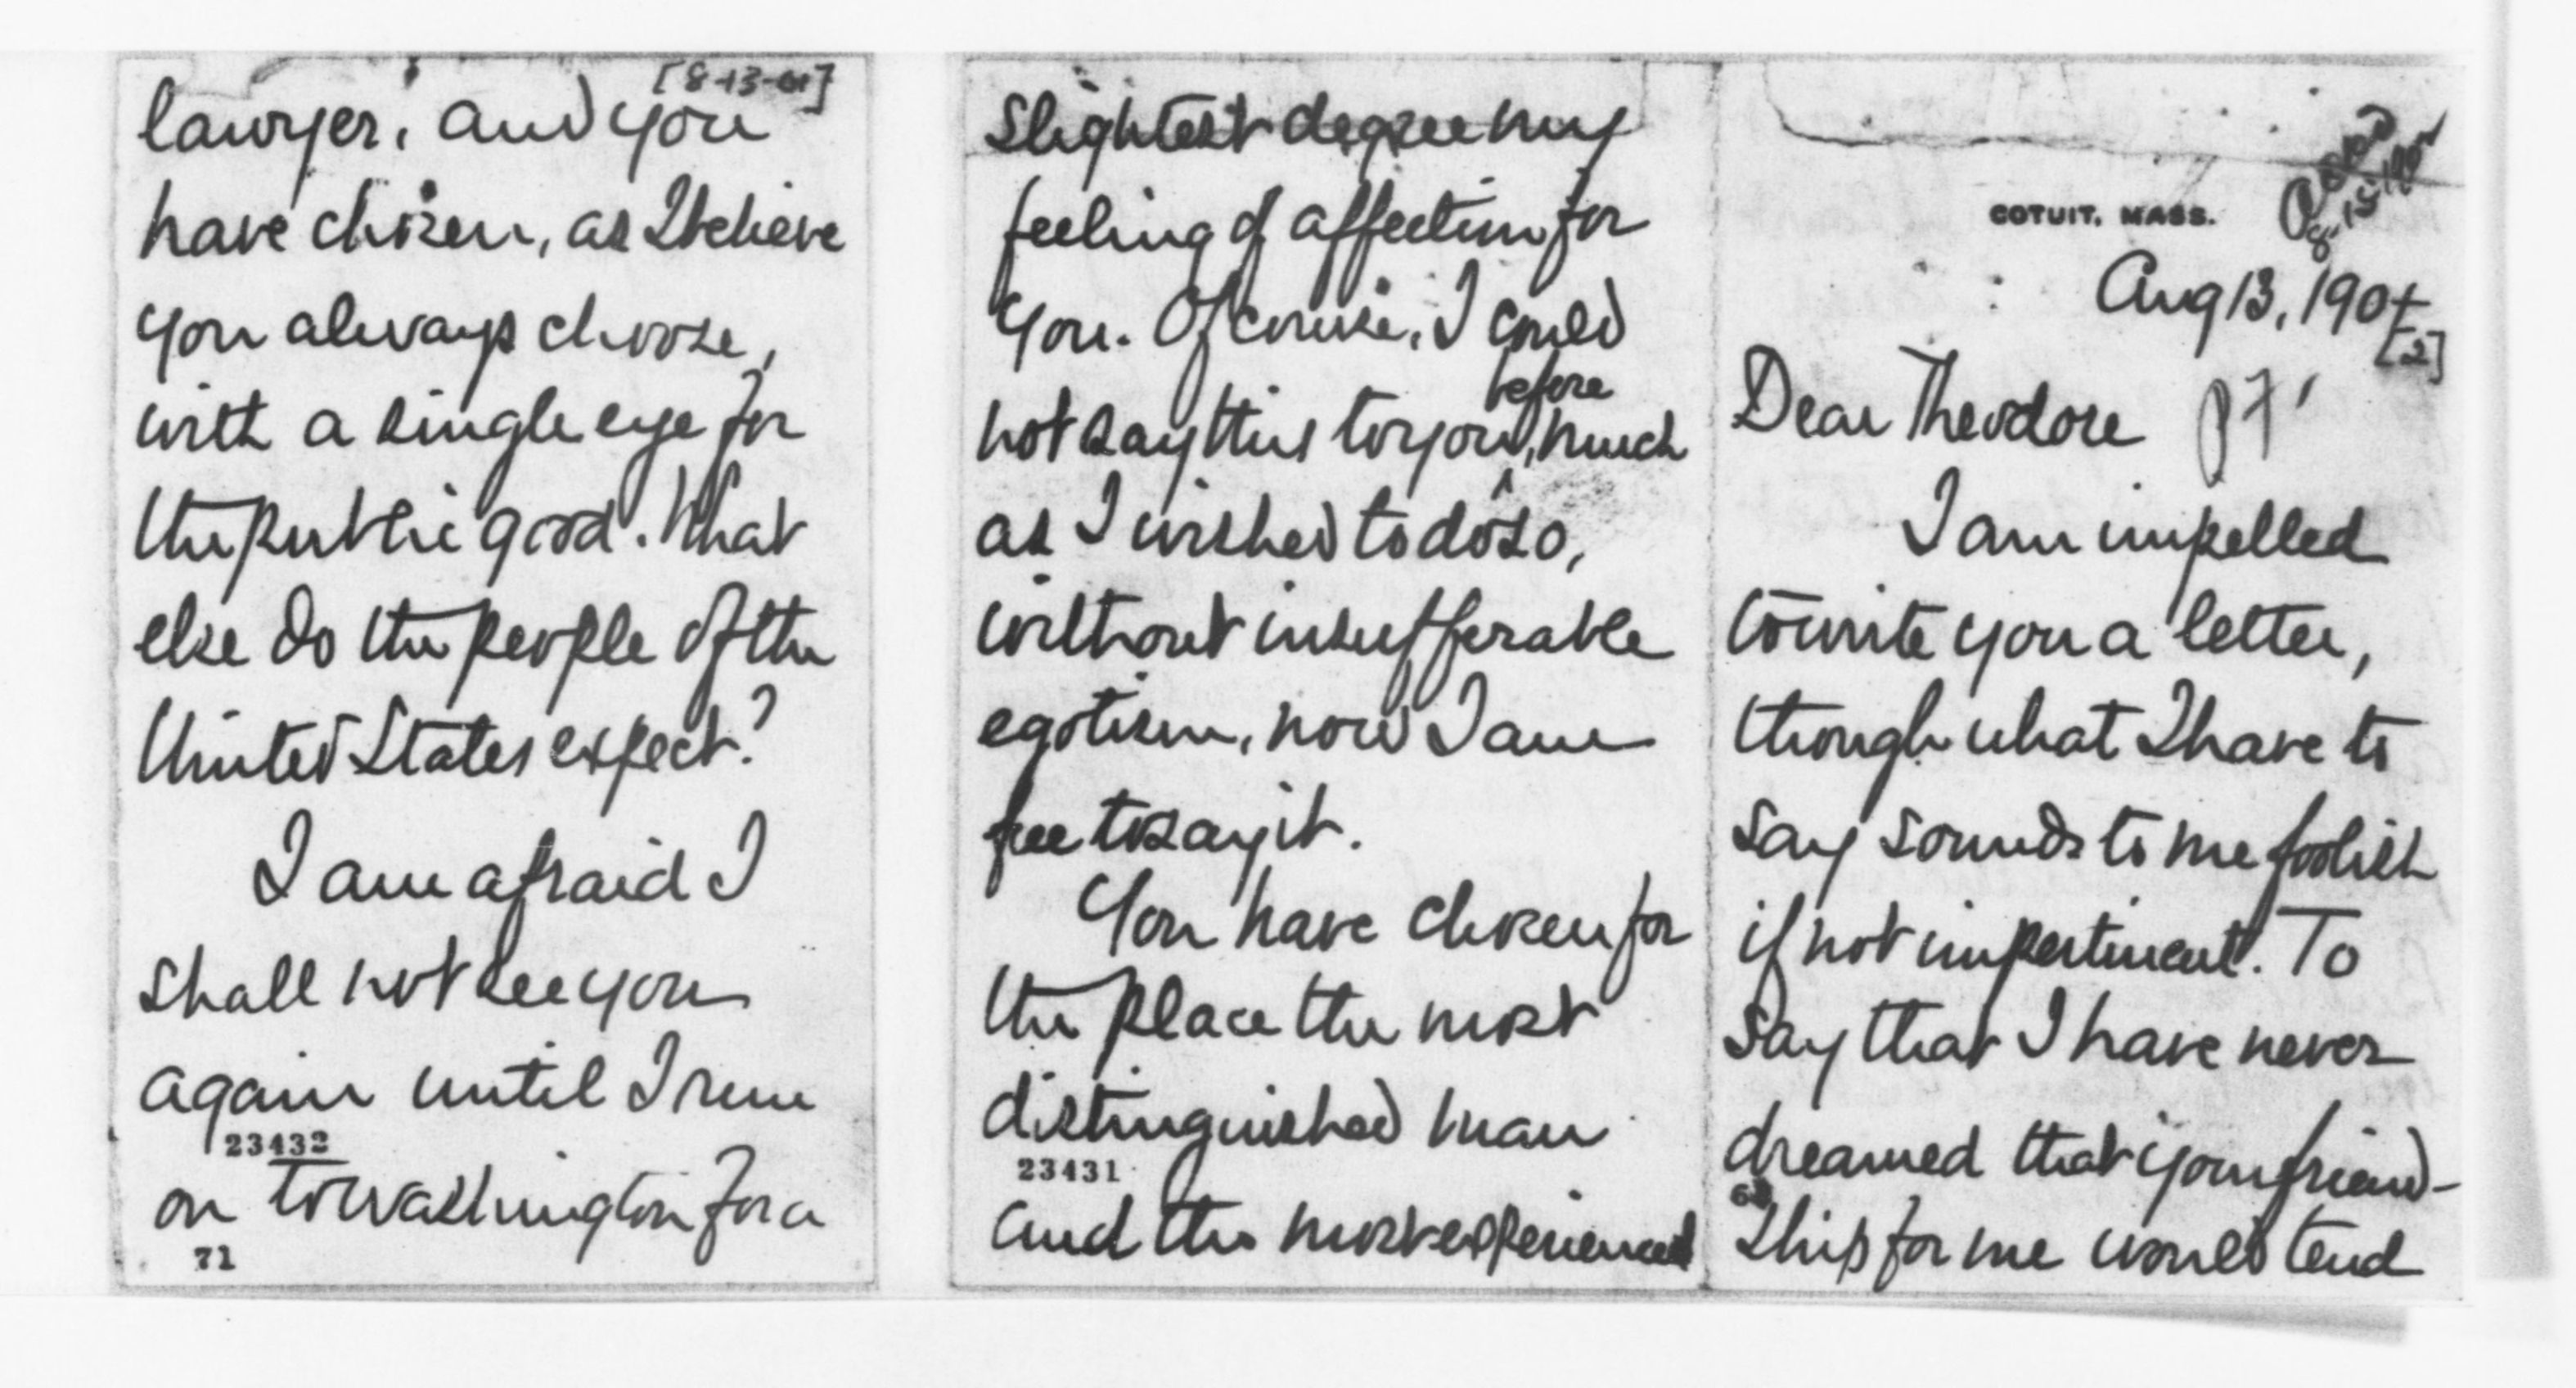 [8-13-01]
lawyer, and you
have chosen, as I believe
you always choose,
with a single eye for
the public good. What
else do the people of the
United States expect?
I am afraid I
shall not see you
again until I run
23432
on to Washington for a
71
slightest degree my
feeling of affection for
you. Of course, I could
before
not say this to you, much
as I wished to do so,
without insufferable
egotism, now I am
free to say it.
You have chosen for
the place the most
distinguished man
23431
and the most experienced
Ackd
8-15-1902
COTUIT, MASS.
Aug 13, 1901
[2]
Dear Theodore
I am impelled
to write you a letter,
though what I have to
say sounds to me foolish
if not impertinent. To
say that I have never
dreamed that your friend-
ship for me would tend